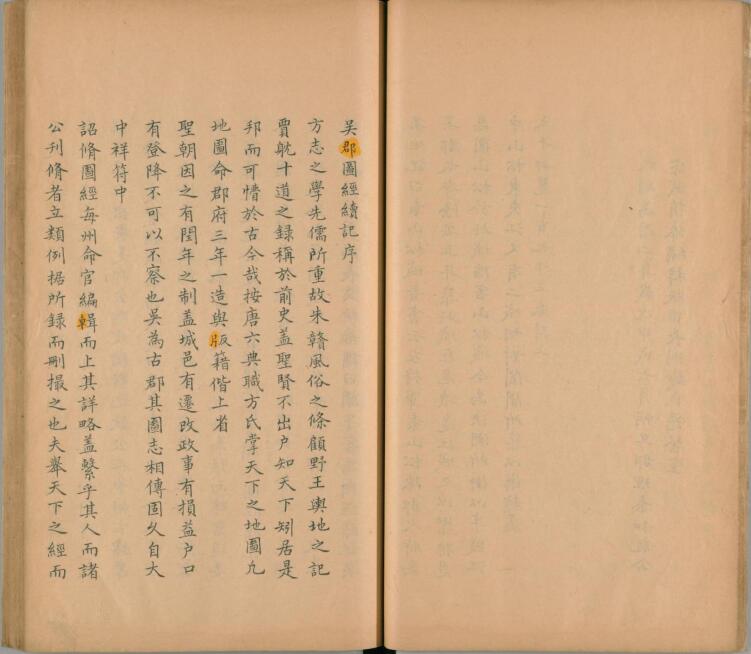 吳郡圖經續記序
方志之學先儒所重故朱贛風俗之條顧野王輿地之記
賈躭十道之錄稱於前史蓋聖賢不出户知天下矧居是
邦而可懵於古今哉按唐六典職方氏掌天下之地圖凡
地圖命郡府三年一造與版籍偕上省
聖朝因之有閏年之制盖城邑有遷改政事有損益户口
有登降不可以不察也吳為古郡其圖志相傳固久自大
中祥符中
詔脩圖經每州命官編輯而上其詳略盖繫乎其人而諸
公刊脩者立類例据所錄而刪撮之也夫舉天下之經而